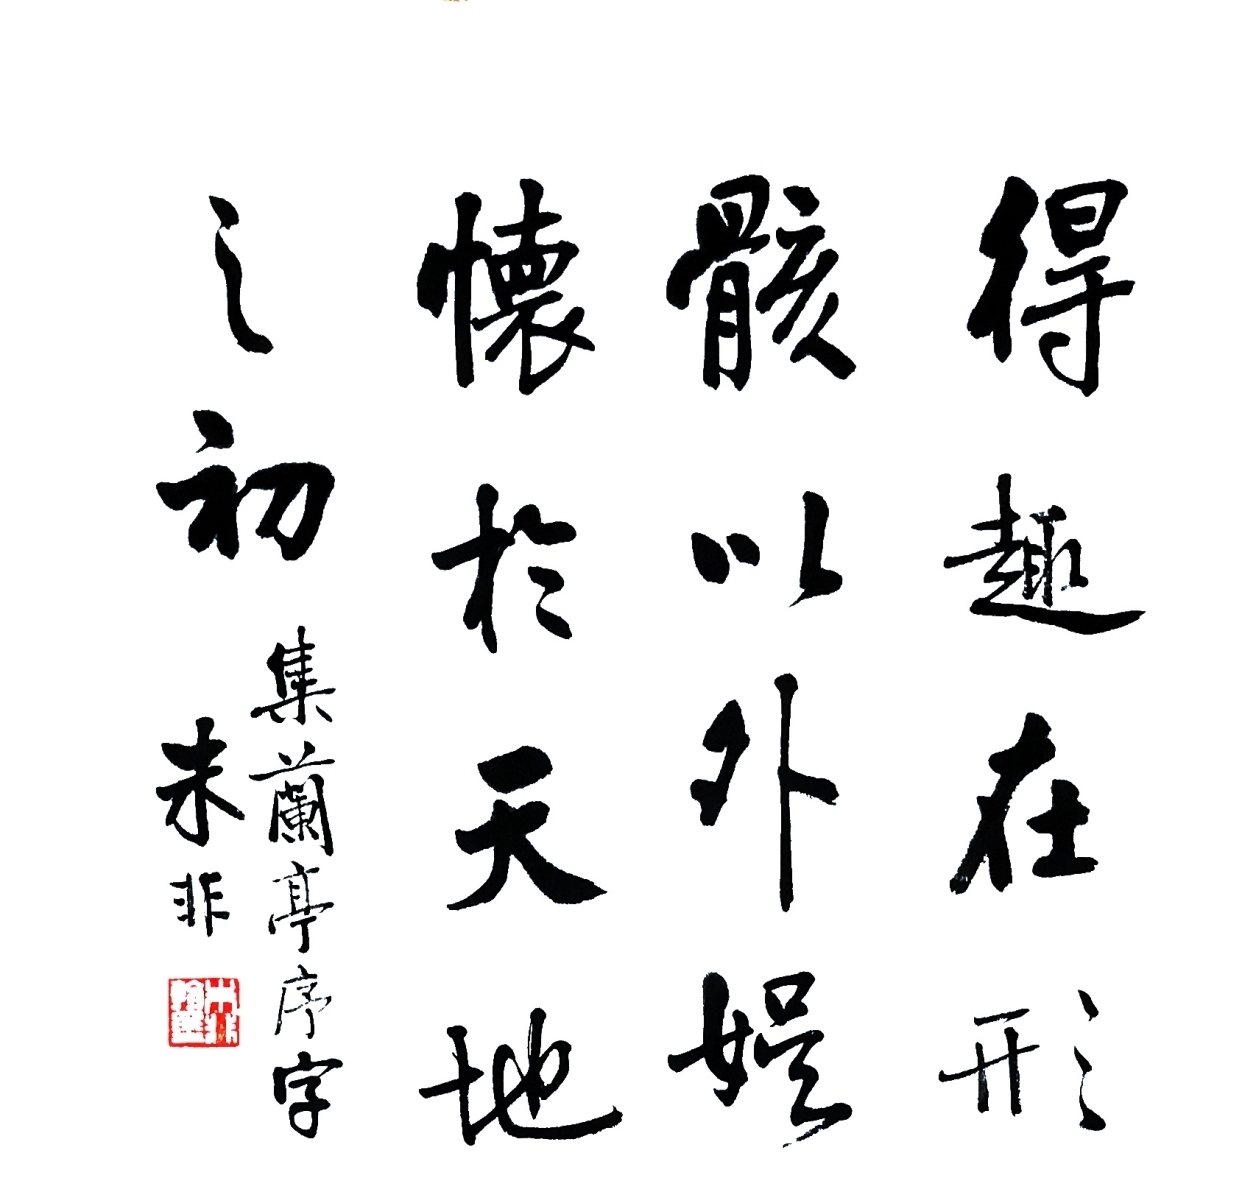 得趣在形
骸以外娱
懷於天地
之初
集蘭亭序字
朱非